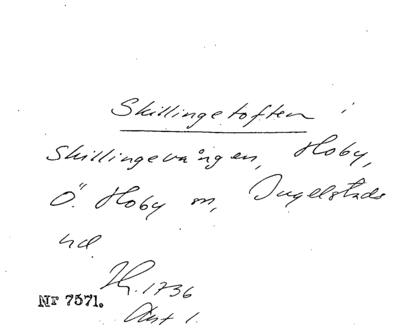 Skillingetoften i
Skillingevången, Hoby,
Ö. Hoby sn, Ingelstads
hd
1736
Nr 7571.
Akt 1.